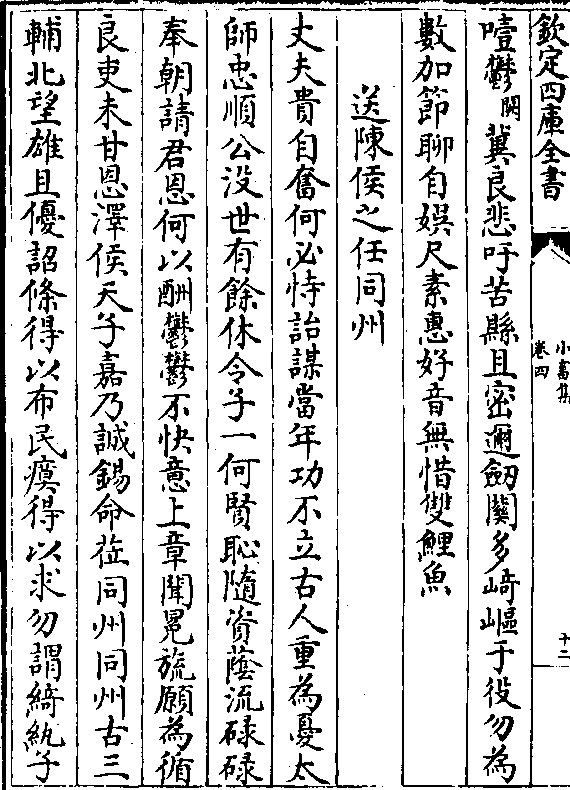 欽定四庫全書
小畜集
卷四
十二
噎鬱闕冀良悲吁苦縣且密邇劒關多﨑嶇于役勿為
數加節聊自娛尺素惠好音無惜雙鯉魚
送陳侯之任同州
丈夫貴自奮何必恃詒謀當年功不立古人重為憂太
師忠順公没世有餘休令子一何賢恥隨資蔭流碌碌
奉朝請君恩何以酬鬱鬱不快意上章聞冕旒願為循
良吏未甘恩澤侯天子嘉乃誠錫命莅同州同州古三
輔北望雄且優詔條得以布民瘼得以求勿謂綺紈子